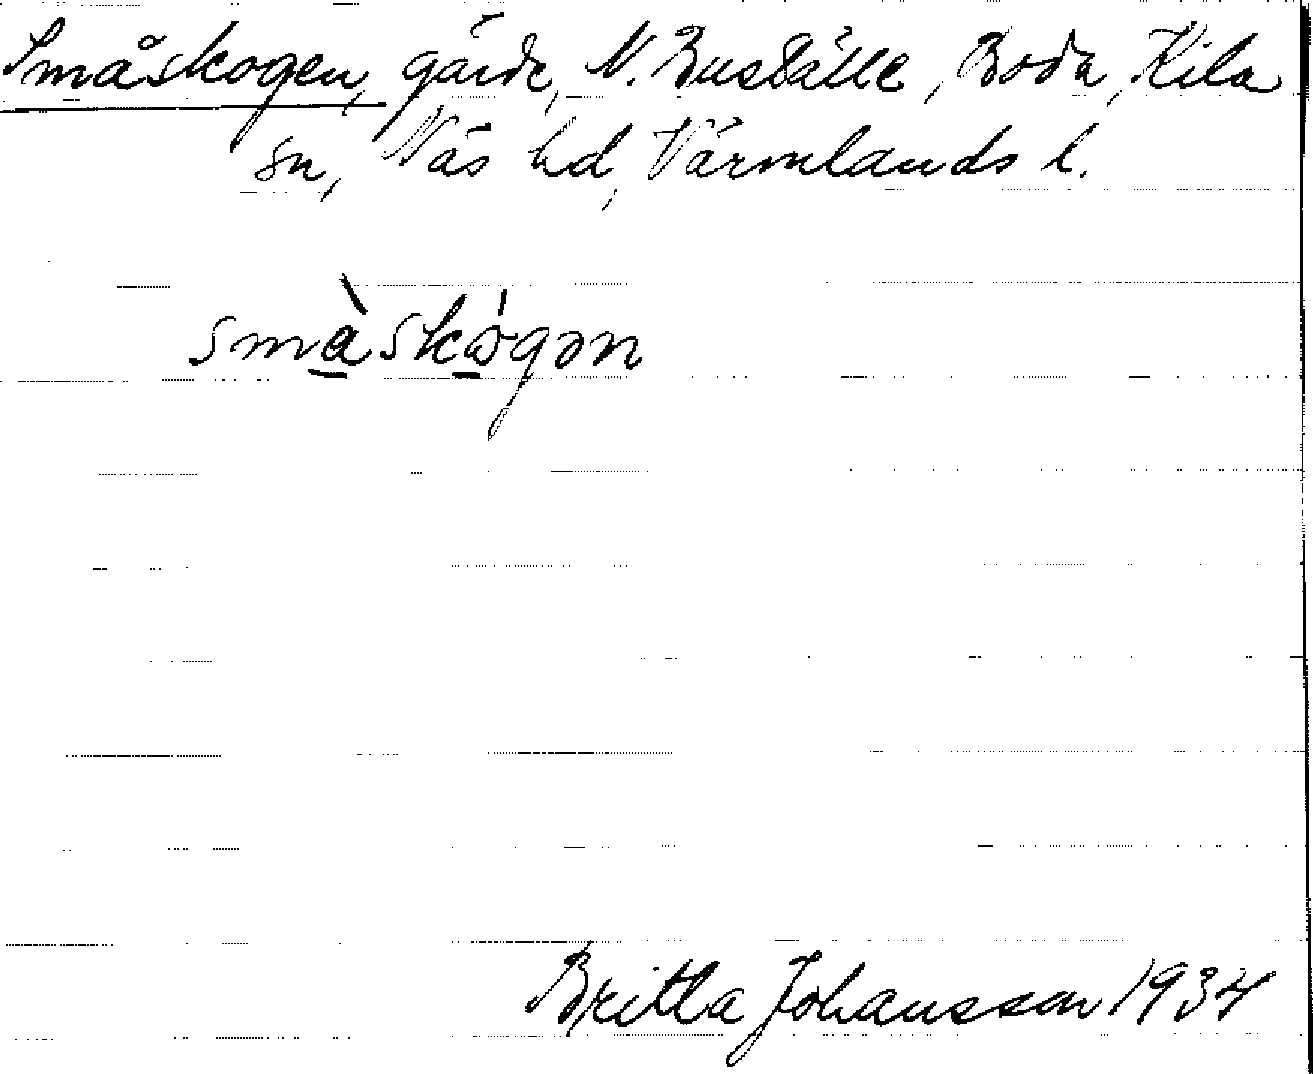 Småskogen, gärde, N. Buställe, Boda, Kila
sn, Näs hd, Värmlands l.
småskogən
Britta Johansson 1934